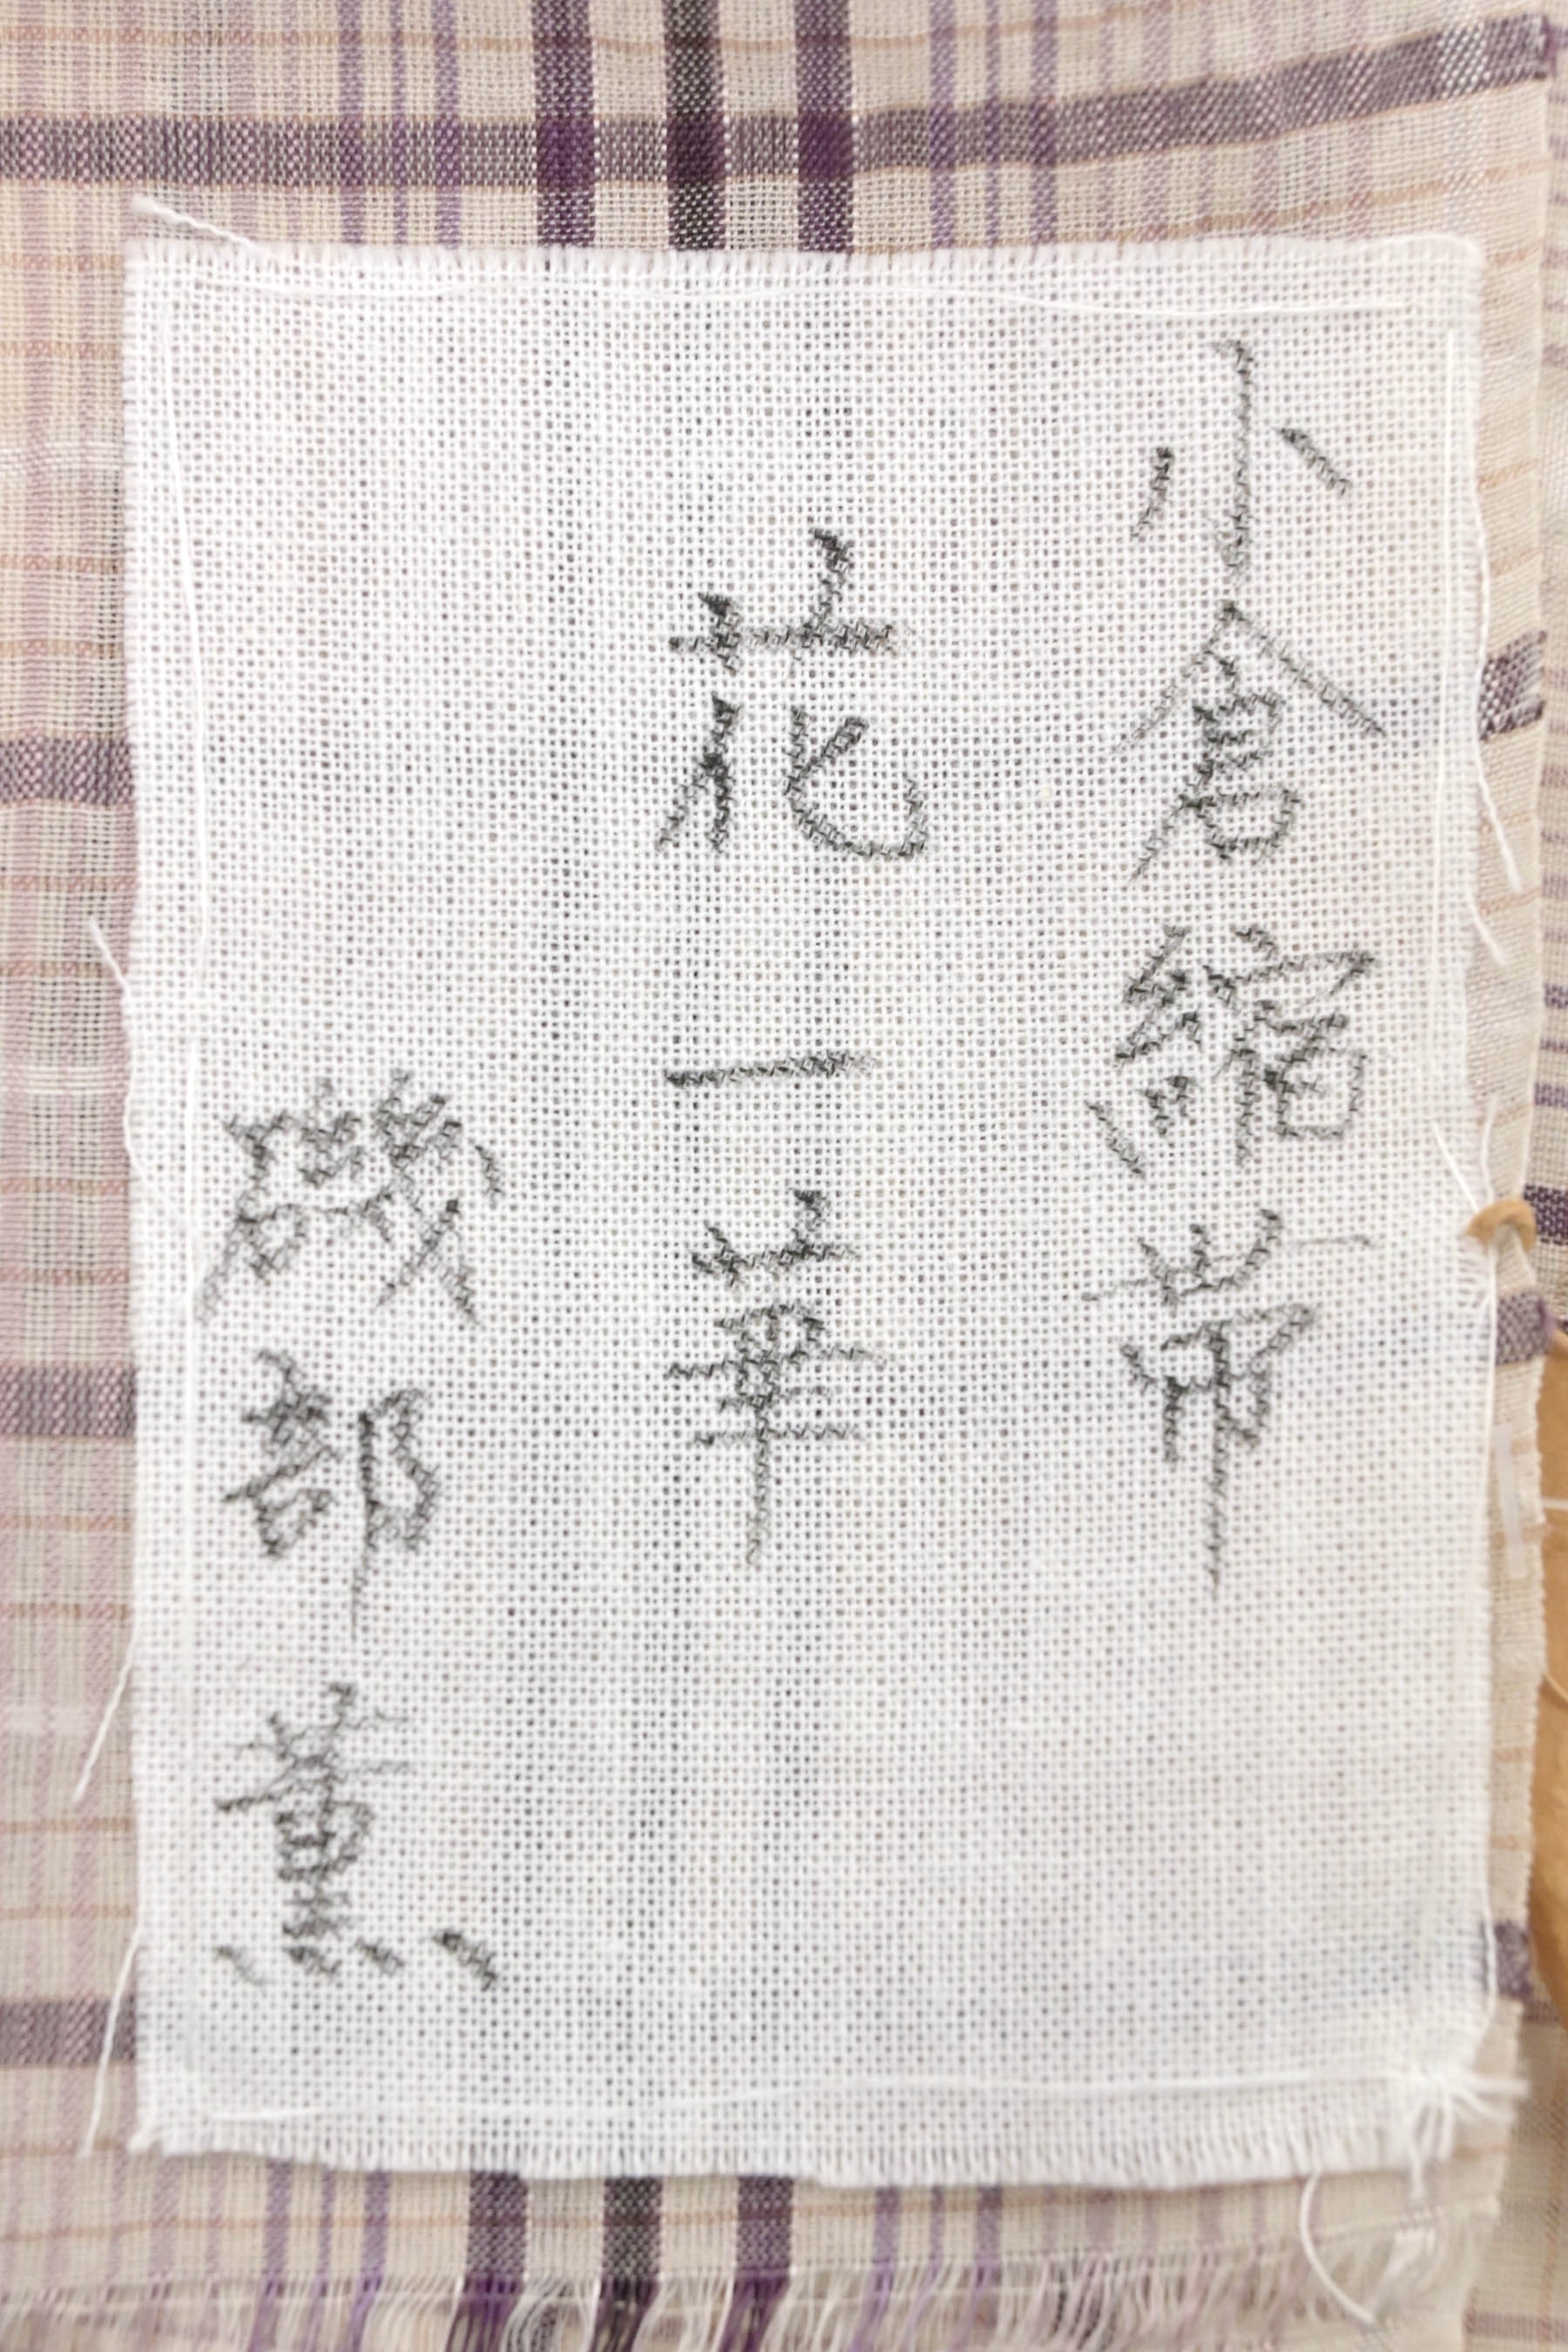 小倉縮帯
花一華
磯部薫